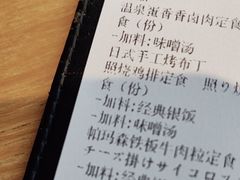 温泉蛋香香卤肉定食
食(份)
-加料:味噌汤
日式手工烤布丁
照烧鸡排定食 照り焼
食(份)
-加料:经典银饭
-加料:味噌汤
帕玛森铁板牛肉粒定食
チーズ掛けサイコロス
-加料:经典